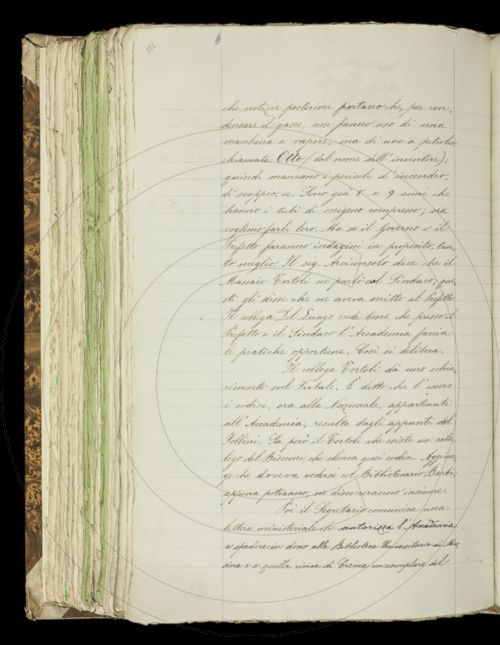 che notizie posteriori portano che, per con-
densare il gasse, non fanno uso di una
macchina a vapore, ma di una a petrolio
chiamata Otto (dal nome dell'inventore);
quindi mancano i pericoli d'incendio,
di scoppio, ec. Sono già 8 o 9 anni che
hanno i tubi di ossigeno compresso; ora
vogliono farli loro. Ma se il Governo o il
Prefetto faranno indagini in proposito, tan-
to meglio. Il sig. Arciconsolo dice che il
Massaio Tortoli ne parlò col Sindaco; que-
sti gli disse che ne aveva scritto al Prefetto.
Il collega Del Lungo vede bene che presso il
Prefetto e il Sindaco l'Accademia faccia
le pratiche opportune. Così si delibera.
Il collega Tortoli dà uno schia-
rimento sul Verbale. È detto che l'essere
i codici, ora alla Nazionale, appartenuti
all'Accademia, resulta dagli appunti del
Follini. Sa però il Tortoli che esiste un cata-
logo del Biscioni che elenca quei codici. Aggiun-
ge che doveva vedersi col Bibliotecario Barbi;
appena potranno, ne discorreranno insieme.
Poi il Segretario comunica una
lettera ministeriale che autorizza l'Accademia
a spedire in dono alla Biblioteca
e a quella civica di Crema un esemplare del